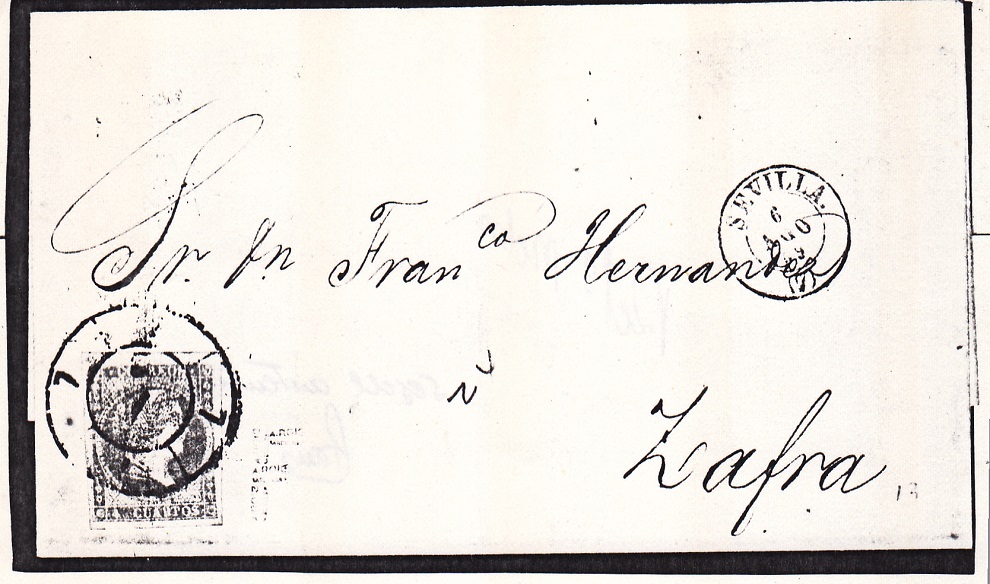 Sr. Dn Franco Hernandez
SEVILLA.
6
AGO
Zafra
CUARTOS